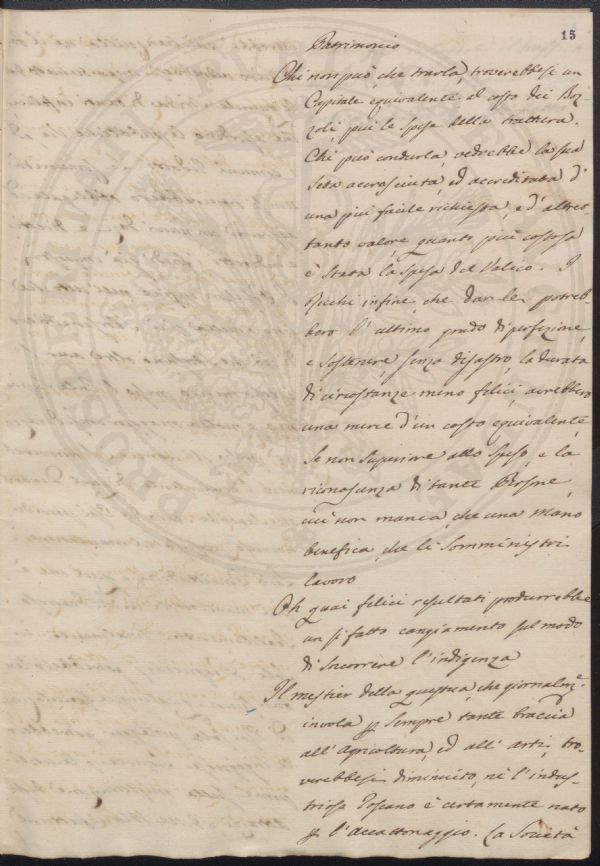 15
Patrimonio
Chi non può, che trarla, troverebbesi un
Capitale equivalente al costo dei Boz-
zoli, più le spese della trattura.
Chi può condurla, vedrebbe la sua
Seta accresciuta, ed accreditata d'
una più facile richiesta, e d'altret-
tanto valore, quanto più costosa
è stata la spesa del Valico. I
ricchi infine, che dar le potreb-
bero l'ultimo grado di perfezione,
e sostenere, senza disastro, la durata
di circostanze meno felici, avrebbero
una merce d'un costo equivalente,
se non superiore alle spese, e la
riconoscenza di tante Persone,
cui non manca, che una mano
benefica, che li somministri
lavoro
Oh quai felici resultati produrrebbe
un sì fatto cangiamento sul modo
di soccorrere l'indigenza
Il mestier della questua, che giornalmᵉ.
invola p sempre tante braccia
all'agricoltura, ed all'arti, tro-
verebbesi diminuito, nè l'indus-
trioso Toscano è certamente nato
p l'accattonaggio. La Società